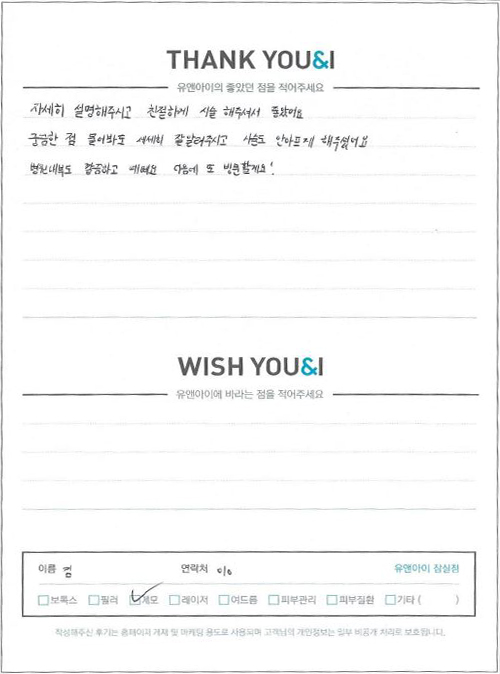 THANK YOU&I
유앤아이의 좋았던 점을 적어주세요
자세히 설명해주시고 친절하게 시술 해주셔서 좋았어요
궁금한 점 물어봐도 세세히 잘알려주시고 시술도 안아프게 해주셨어요
병원내부도 깔끔하고 예뻐요 다음에 또 방문할게요!
WISH YOU&I
유앤아이에 바라는 점을 적어주세요
이름 염 연락처 010 유앤아이 잠실점
보톡스 필러 제모 레이저 여드름 피부관리 피부질환 기타 ( )
작성해주신 후기는 홈페이지 게재 및 마케팅 용도로 사용되며 고객님의 개인정보는 일부 비공개 처리로 보호됩니다.